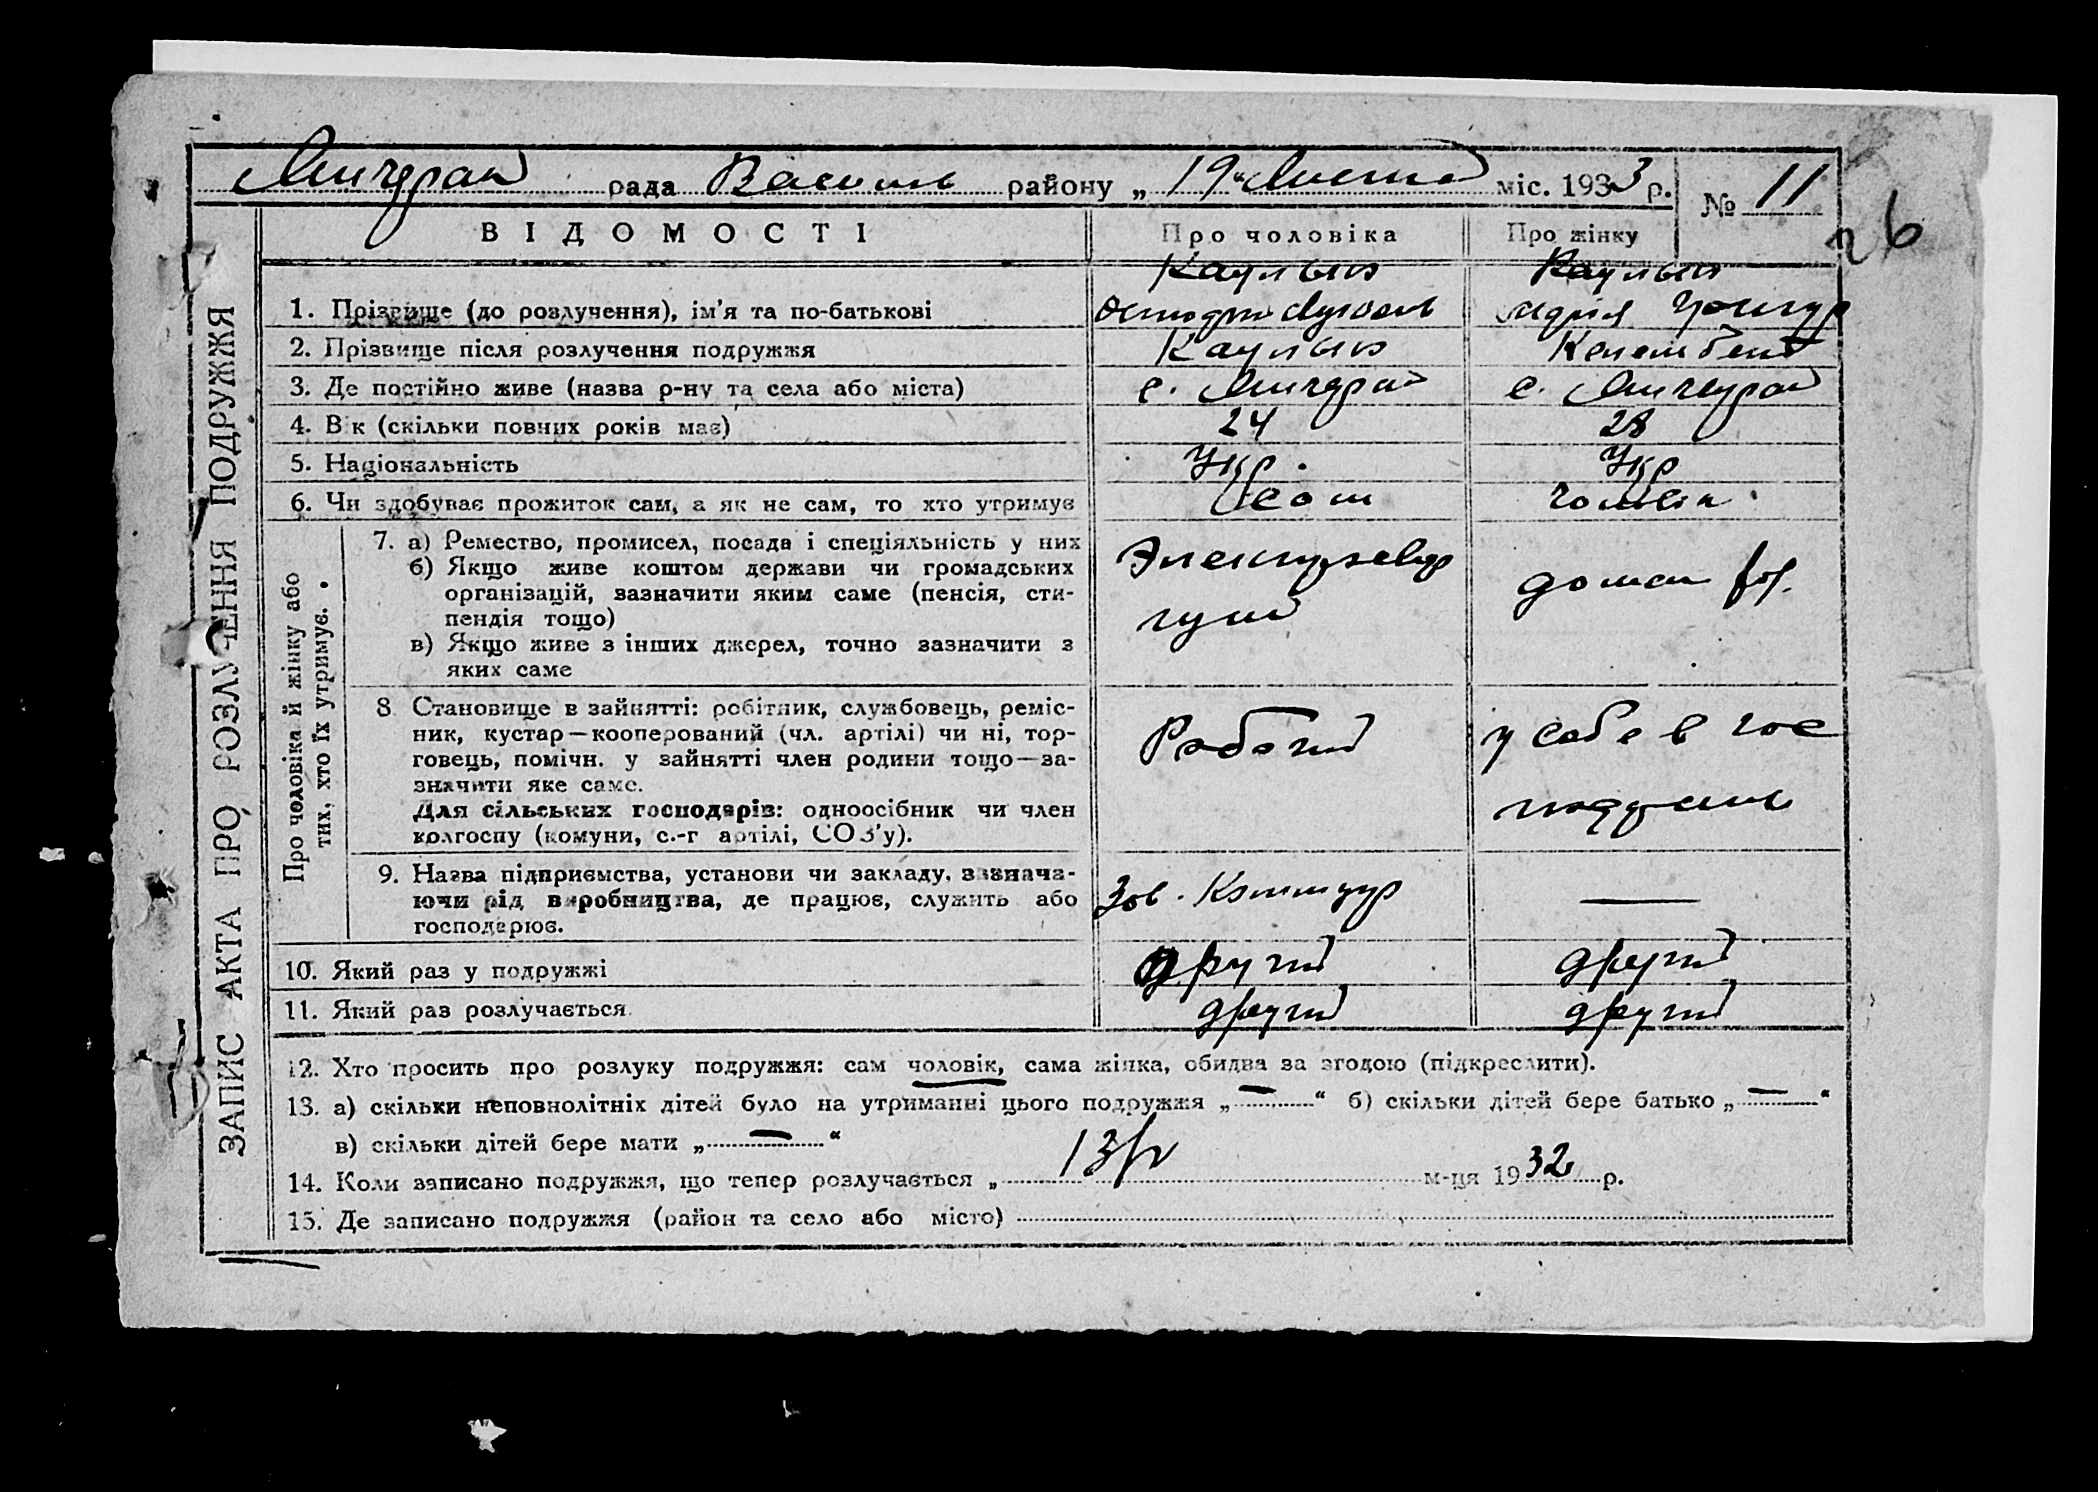 рада Васильк району „ 19 " Листоп міс. 1933 р. № 11
26
ЗАПИС АКТА ПРО РОЗЛУЧЕННЯ ПОДРУЖЖЯ
ВІДОМОСТІ Про чоловіка Про жінку
1. Прізвище (до розлучення), ім'я та по-батькові
2. Прізвище після розлучення подружжя
3. Де постійно живе (назва р-ну та села або міста) с. с.
4. Вік (скільки повних років має) 24 28
5. Національність Укр. Укр
6. Чи здобуває прожиток сам, а як не сам, то хто утримує Сам чоловік
Про чоловіка й жінку або
тих, хто їх утримує.
7. а) Ремество, промисел, посада і спеціяльність у них
б) Якщо живе коштом держави чи громадських
організацій, зазначити яким саме (пенсія, сти-
пендія тощо)
в) Якщо живе з інших джерел, точно зазначити з
яких саме
домаш
8. Становище в зайнятті: робітник, службовець, реміс-
ник, кустар—кооперований (чл. артілі) чи ні, тор-
говець, помічн. у зайнятті член родини тощо—за-
значити яке саме.
Для сільських господарів: одноосібник чи член
колгоспу (комуни, с.-г артілі, СОЗ'у).
Рабочий у себе в гос
9. Назва підприємства, установи чи закладу, зазнача-
ючи рід виробництва, де працює, служить або
господарює.
—
10. Який раз у подружжі другий другий
11. Який раз розлучається другий другий
12. Хто просить про розлуку подружжя: сам чоловік, сама жінка, обидва за згодою (підкреслити).
13. а) скільки неповнолітніх дітей було на утриманні цього подружжя „ — “ б) скільки дітей бере батько „ — “
в) скільки дітей бере мати „ — “
14. Коли записано подружжя, що тепер розлучається „ 13/IV м-ця 1932 р.
15. Де записано подружжя (район та село або місто)